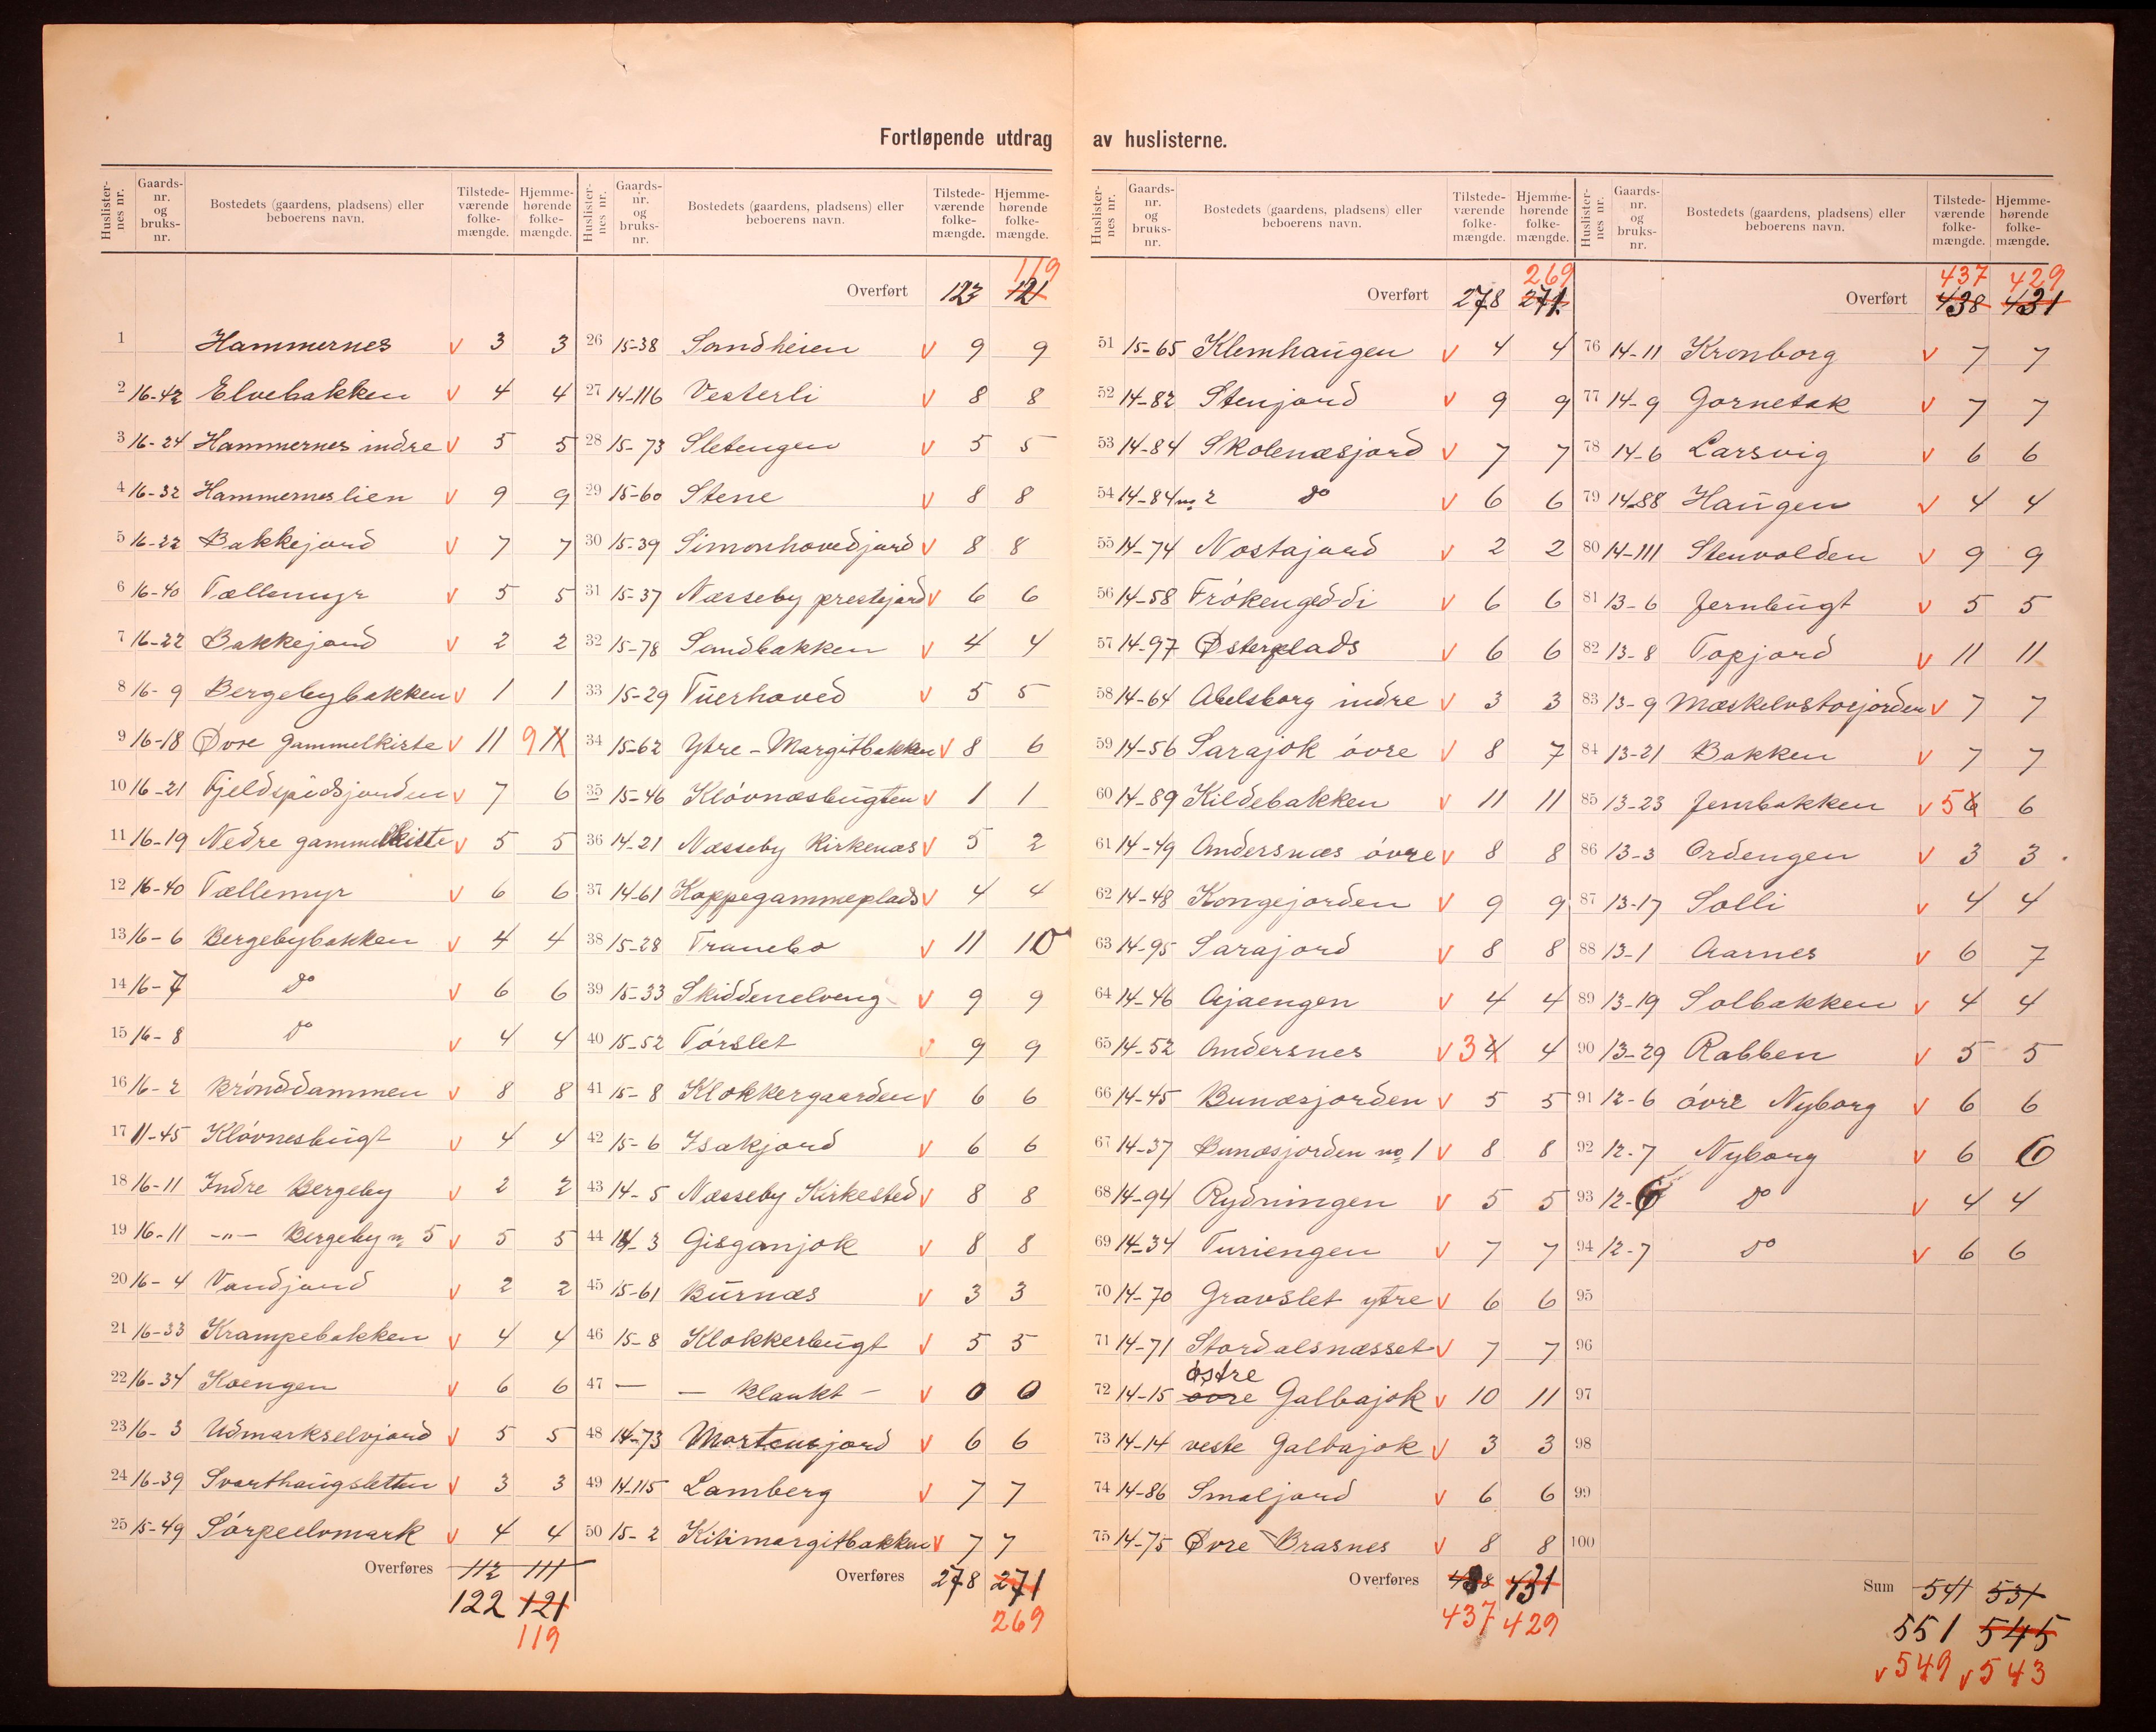 Fortløpende utdrag av huslisterne.
Huslisternes nr. Gaards-nr. og bruks-nr. Bostedets (gaardens, pladsens) eller beboerens navn. Tilstedeværende folkemængde. Hjemmehørende folkemængde.
1 Hammernes v 3 3
2 16-42 Elvebakken v 4 4
3 16-24 Hammernes indre v 5 5
4 16-32 Hammerneslien v 9 9
5 16-22 Bakkejord v 7 7
6 16-40 Tællemyr v 5 5
7 16-22 Bakkejord v 2 2
8 16-9 Bergebybakken v 1 1
9 16-18 Øvre Gammelkiste v 11 9 11
10 16-21 Fjeldspidsjorden v 7 6
11 16-19 Nedre gammelkiste v 5 5
12 16-40 Tællemyr v 6 6
13 16-6 Bergebybakken v 4 4
14 16-7 do v 6 6
15 16-8 do v 4 4
16 16-2 Brónddammen v 8 8
17 11-45 Klóvnesbugt v 4 4
18 16-11 Indre Bergeby v 2 2
19 16-11 -"- Bergeby no 5 v 5 5
20 16-4 Vandjord v 2 2
21 16-33 Krampebakken v 4 4
22 16-34 Koengen v 6 6
23 16-3 Udmarkselvjord v 5 5
24 16-39 Svarthaugsletten v 3 3
25 15-49 Sórpeelvmark v 4 4
Overføres 112 111
122 121
119
Huslisternes nr. Gaards-nr. og bruks-nr. Bostedets (gaardens, pladsens) eller beboerens navn. Tilstedeværende folkemængde. Hjemmehørende folkemængde.
119
Overført 122 121
26 15-38 Sandheien v 9 9
27 14-116 Vesterli v 8 8
28 15-73 Sletengen v 5 5
29 15-60 Stene v 8 8
30 15-39 Simonhovedjord v 8 8
31 15-37 Næsseby prestejord v 6 6
32 15-78 Sandbakken v 4 4
33 15-29 Tuerhoved v 5 5
34 15-62 Ytre-Margitbakken v 8 6
35 15-46 Klóvnæsbugten v 1 1
36 14-21 Næsseby Kirkenæs v 5 2
37 14-61 Koppegammeplads v 4 4
38 15-28 Tranebo v 11 10
39 15-33 Skiddenelveng v 9 9
40 15-52 Tórslet v 9 9
41 15-8 Klokkergaarden v 6 6
42 15-6 Isakjord v 6 6
43 14-5 Næsseby Kirkested v 8 8
44 14-3 Gisganjok v 8 8
45 15-61 Burnæs v 3 3
46 15-8 Klokkerbugt v 5 5
47 — — Blankt — v 0 0
48 14-73 Mortensjord v 6 6
49 14-115 Lamberg v 7 7
50 15-2 Kitimargitbakken v 7 7
Overføres 278 271
269
Huslisternes nr. Gaards-nr. og bruks-nr. Bostedets (gaardens, pladsens) eller beboerens navn. Tilstedeværende folkemængde. Hjemmehørende folkemængde.
269
Overført 278 271
51 15-65 Klemhaugen v 4 4
52 14-82 Stenjord v 9 9
53 14-84 Skolenæsjord v 7 7
54 14-84 no 2 do v 6 6
55 14-74 Nostajord v 2 2
56 14-58 Frókengeddi v 6 6
57 14-97 Østerplads v 6 6
58 14-64 Abelsborg indre v 3 3
59 14-56 Sarajok óvre v 8 7
60 14-89 Kildebakken v 11 11
61 14-49 Andersnæs óvre v 8 8
62 14-48 Kongejorden v 9 9
63 14-95 Sarajord v 8 8
64 14-46 Ajaengen v 4 4
65 14-52 Andersnes v 3 4 4
66 14-45 Bunæsjorden v 5 5
67 14-37 Bunæsjorden no 1 v 8 8
68 14-94 Rydningen v 5 5
69 14-34 Turiengen v 7 7
70 14-70 Gravslet ytre v 6 6
71 14-71 Stordalsnæsset v 7 7
72 14-15 óvre óstre Galbajok v 10 11
73 14-14 veste Galbajok v 3 3
74 14-86 Smaljord v 6 6
75 14-75 Øvre Brasnes v 8 8
Overføres 438 431
437 429
Huslisternes nr. Gaards-nr. og bruks-nr. Bostedets (gaardens, pladsens) eller beboerens navn. Tilstedeværende folkemængde. Hjemmehørende folkemængde.
437 429
Overført 438 431
76 14-11 Kronborg v 7 7
77 14-9 Gornetak v 7 7
78 14-6 Larsvig v 6 6
79 14-88 Haugen v 4 4
80 14-111 Stenvolden v 9 9
81 13-6 Jernbugt v 5 5
82 13-8 Topjord v 11 11
83 13-9 Mæskelvstosjorden v 7 7
84 13-21 Bakken v 7 7
85 13-23 Jernbakken v 5 6 6
86 13-3 Ordengen v 3 3
87 13-17 Solli v 4 4
88 13-1 Aarnes v 6 7
89 13-19 Solbakken v 4 4
90 13-29 Rabben v 5 5
91 12-6 óvre Nyborg v 6 6
92 12-7 Nyborg v 6 6
93 12- do v 4 4
94 12-7 do v 6 6
95
96
97
98
99
100
Sum 541 531
551 545
v 549 v 543